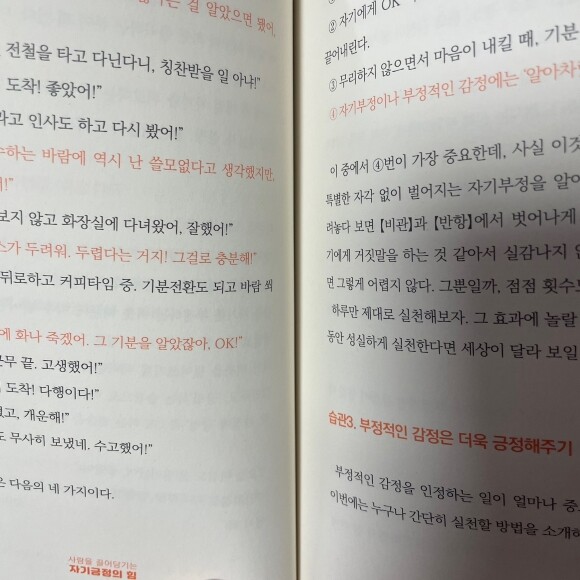 걸 알았으면 됐어,
전철을 타고 다닌다니, 칭찬받을 일 아냐!"
도착! 좋았어!"
라고 인사도 하고 다시 봤어!"
수하는 바람에 역시 난 쓸모없다고 생각했지만,
보지 않고 화장실에 다녀왔어, 잘했어!"
스가 두려워. 두렵다는 거지! 그걸로 충분해!"
뒤로하고 커피타임 중. 기분전환도 되고 바람 쐬
에 화나 죽겠어. 그 기분을 알았잖아, OK!"
근무 끝. 고생했어!"
도착! 다행이다!"
었고, 개운해!"
도 무사히 보냈네. 수고했어!"
은 다음의 네 가지이다.
사람을 끌어당기는
자기긍정의 힘
② 자기에게 OK
끝어내린다.
③ 무리하지 않으면서 마음이 내킬 때, 기분
④ 자기부정이나 부정적인 감정에는 '알아차
이 중에서 ④번이 가장 중요한데, 사실 이것
특별한 자각 없이 벌어지는 자기부정을 알아
려놓다 보면 【비관】과 【반항】에서 벗어나게
기에게 거짓말을 하는 것 같아서 실감나지 않
면 그렇게 어렵지 않다. 그뿐일까, 점점 횟수
하루만 제대로 실천해보자. 그 효과에 놀랄
동안 성실하게 실천한다면 세상이 달라 보일
습관3. 부정적인 감정은 더욱 긍정해주기
부정적인 감정을 인정하는 일이 얼마나 중
이번에는 누구나 간단히 실천할 방법을 소개하